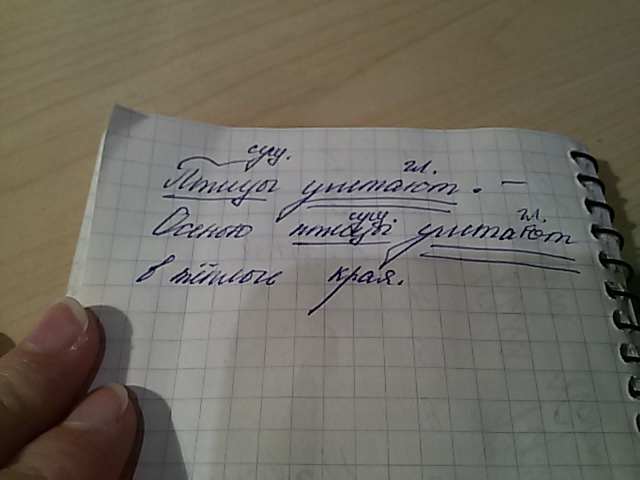 сущ. гл.
Птицы улетают. –
сущ. гл.
Осенью птицы улетают
в тёплые края.